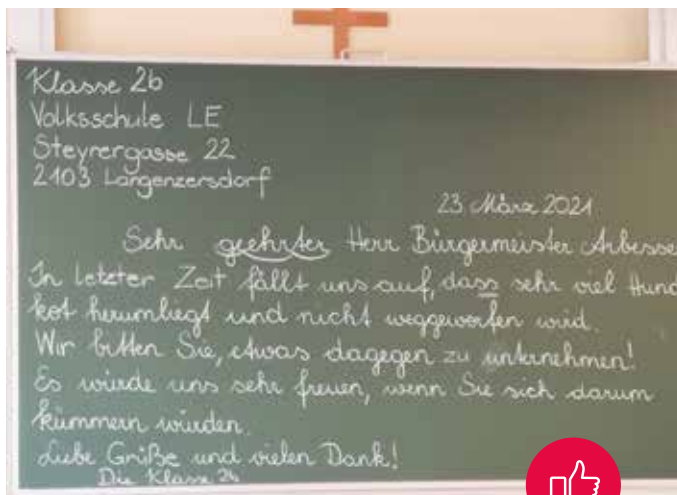 Klasse 2b
Volksschule LE
Steyrergasse 22
2103 Langenzersdorf
23. März 2021
Sehr geehrter Herr Bürgermeister Arbesse
In letzter Zeit fällt uns auf, dass sehr viel Hund
kot herumliegt und nicht weggeworfen wird.
Wir bitten Sie, etwas dagegen zu unternehmen!
Es würde uns sehr freuen, wenn Sie sich darum
kümmern würden.
Liebe Grüße und vielen Dank!
Die Klasse 2b